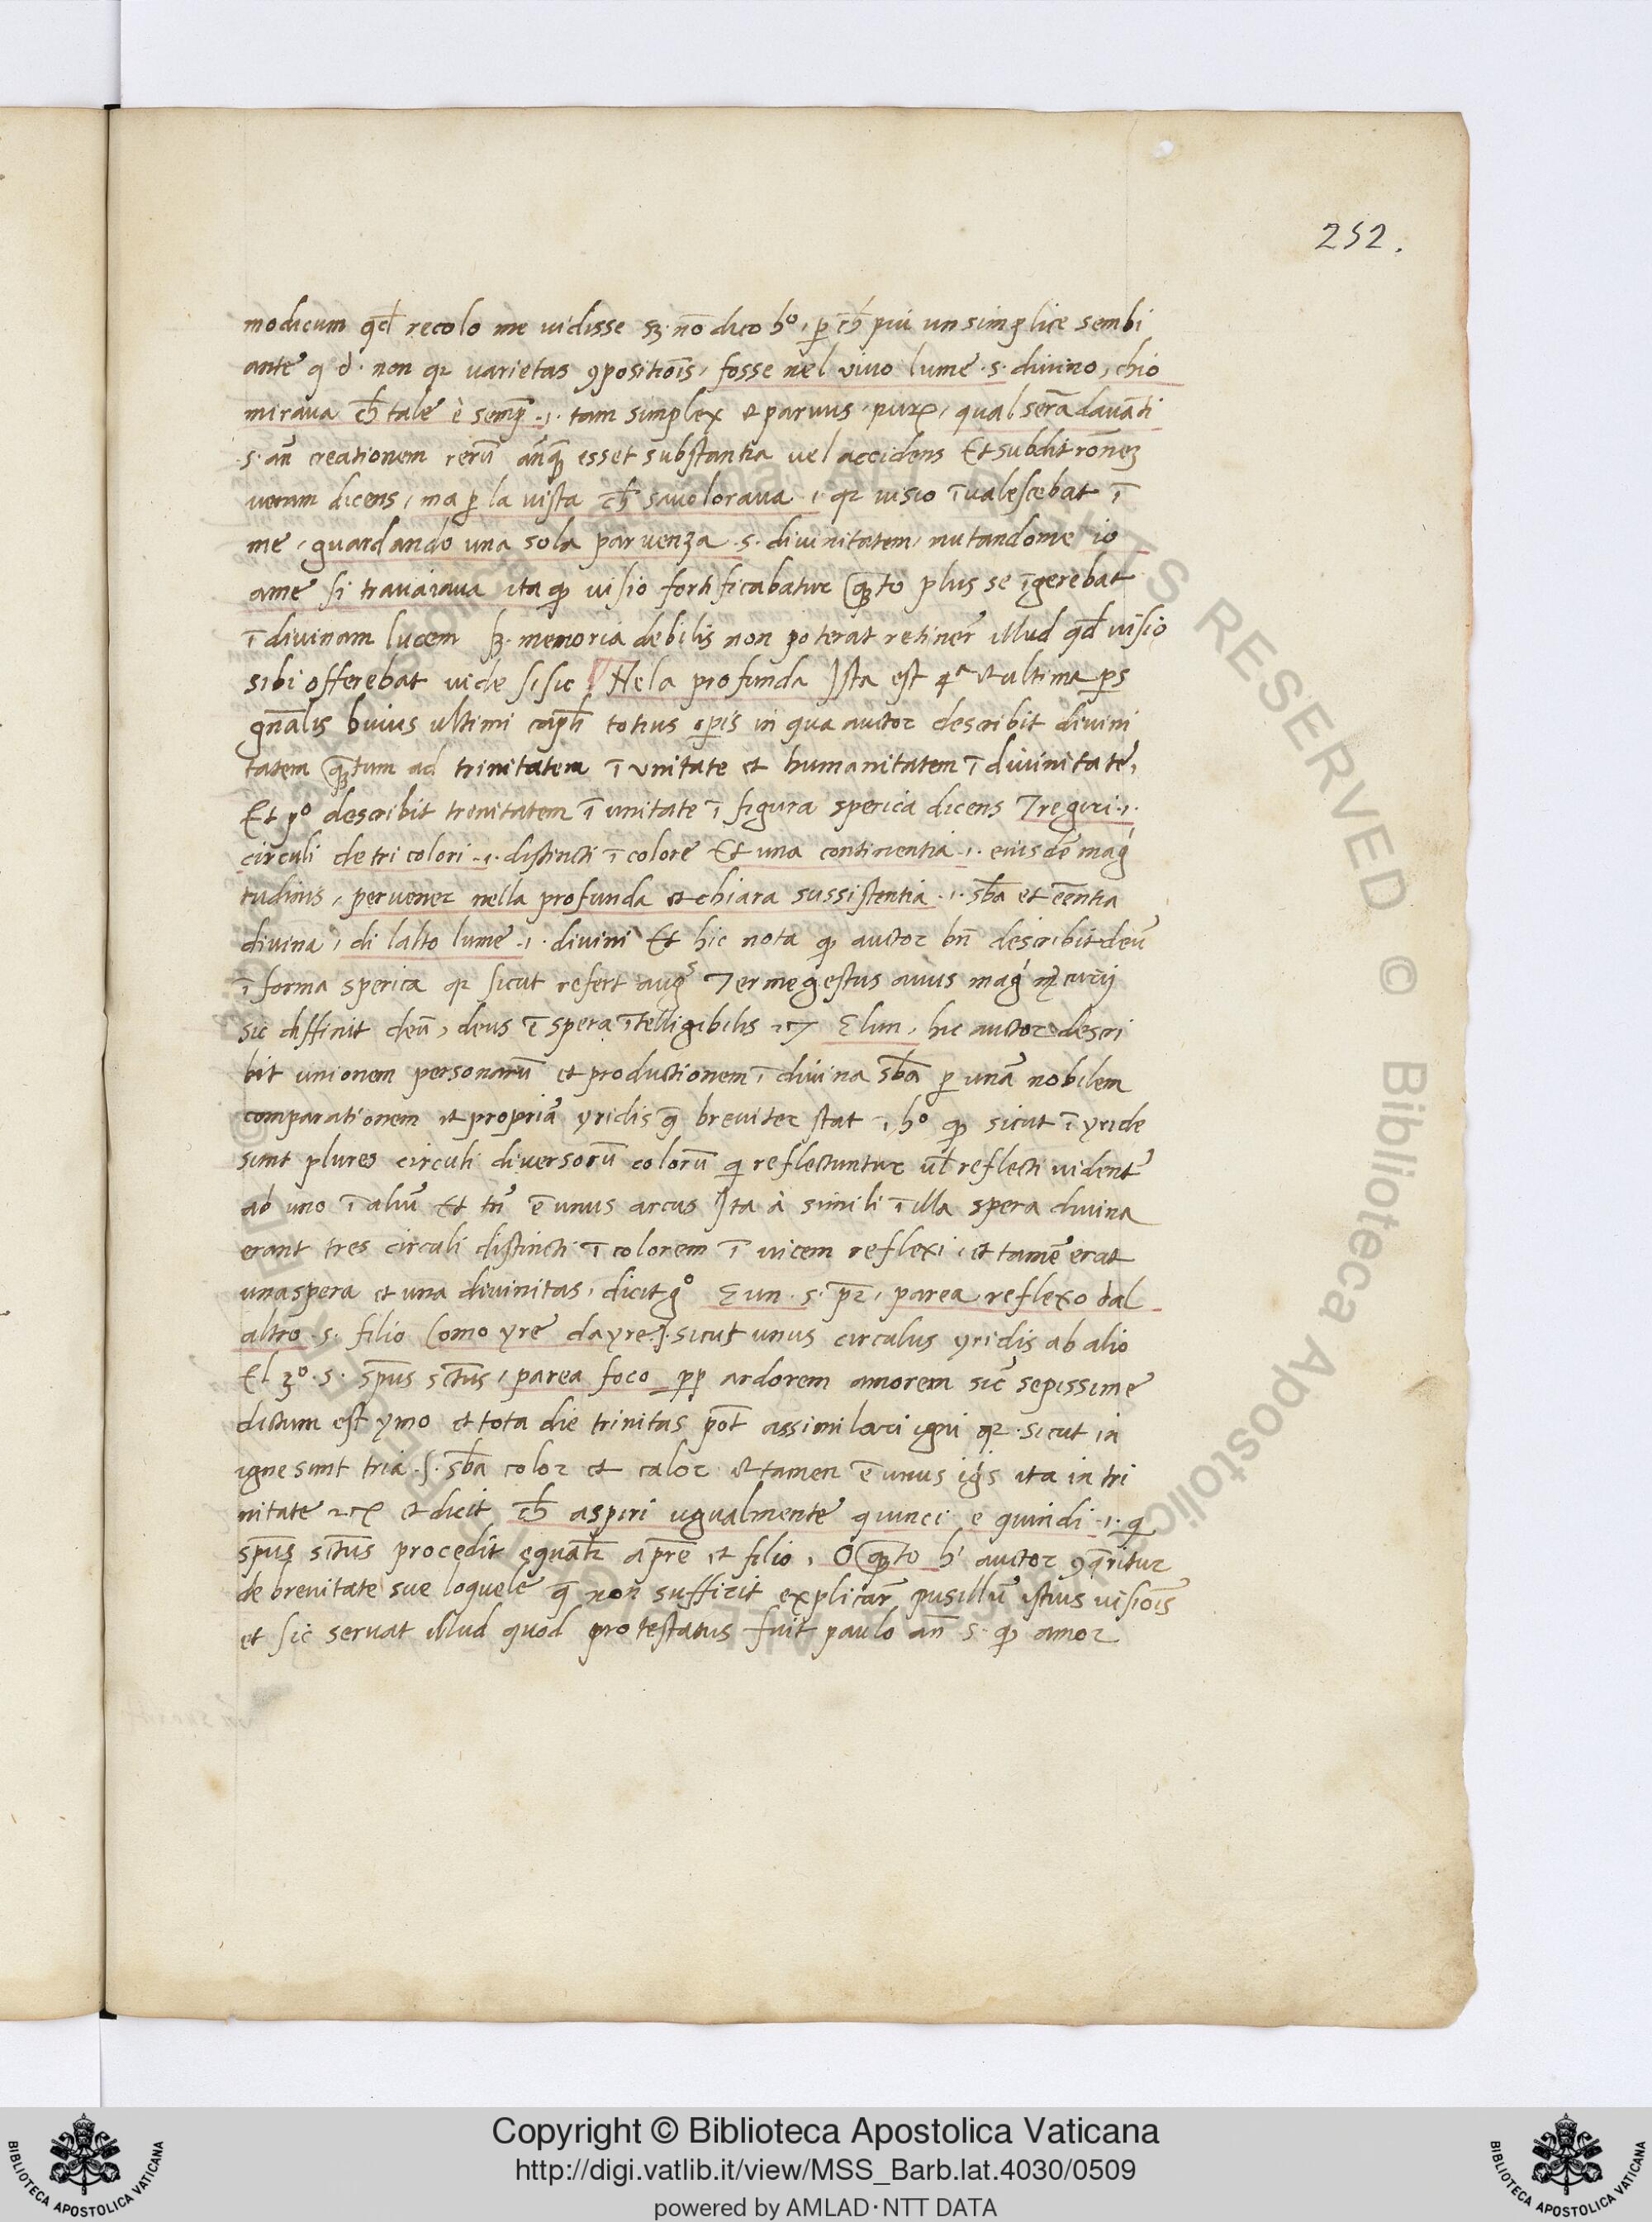 252.
modicum qd̄ recolo me vidisse sꝫ nō dico hº, ꝑ ch̄ piu un simplice sembi
ante q d. non qꝛ varietas ꝯpositiōis, fosse nel vivo lume .s. divino, chio
mirava ch̄ tale è semp̄ .i. tam simplex et parvus, qual sera davāti
.s. an̄ creationem rerū anq̄ꝫ esset substantia vel accidens Et subdit rōneꝫ
veram dicens, ma ꝑ la vista ch̄ savolorava .i. qꝛ visio īvalescebat ī
me, guardando una sola parvenza .s. divinitatem, mutandome io
ame si travaiava ita qꝫ visio fortificabatur qꝫto plus se īgerebat
ī divinam lucem sꝫ memoria debilis non poterat retiner̄ illud qd̄ visio
sibi offerebat vide si sic Nela profunda Ista est 4ª et ultima ꝑs
gn̄alis huius ultimi capl̄i totius opis in qua auctor describit divini
tatem qꝫtum ad trinitatem ī unitate et humanitatem ī divinitate,
Et pº describit trinitatem ī unitate ī figura sperica dicens Tre giri .i.
circuli de tri colori .i. distincti ī colore Et una continentia .i. eiusdē mag
tudinis, pervener nella profunda et chiara sussistentia .i. sb̄a et eēntia
divina, di lalto lume .i. divini Et hic nota qꝫ auctor bn̄ describit deū
ī forma sperica qꝛ sicut refert augs Termegestus avus maḡ mercurij
sic diffinit deū, deus ē spera ītelligibilis Elun, hic auctor descri
bit unionem personarū et productionem ī divina sb̄a ꝑ unā nobilem
comparationem et propriā yridis q̄ breviter stat ī hº qꝫ sicut ī yride
sunt plures circuli diversorū colorū qi reflectuntur ul̄ reflecti videntᵘ
ab uno ī aliū Et tn̄ ē unus arcus Ita à simili ī illa spera divina
erant tres circuli distincti ī colorem ī vicem reflexi, et tamē erat
una spera et una divinitas, dicit gº Eun .s. pr̄, parea reflexo dal
altro .s. filio Como yre da yre .s. sicut unus circulus yridis ab alio
El 3º .s. sp̄us sctūs, parea foco pp̄ ardorem amorem sic̄ sepissime
dictum est ymo et tota die trinitas pōt assimilari igni qꝛ sicut in
igne sunt tria .s. sb̄a color et calor et tamen ē unus igis ita in tri
nitate et dicit ch̄ aspiri ugualmente quinci e quindi .i. qi
sp̄us sctūs procedit equalr̄ a pr̄e et filio, O qꝫto h' auctor ꝯq̄ritur
de brevitate sue loquele q̄ non sufficit explicar̄ pusillū istius visiōis
et sic servat illud quod protestatus fuit paulo an̄ .s. qꝫ amor
Copyright © Biblioteca Apostolica Vaticana
http://digi.vatlib.it/view/MSS_Barb.lat.4030/0509
powered by AMLAD·NTT DATA
BIBLIOTECA APOSTOLICA VATICANA
BIBLIOTECA APOSTOLICA VATICANA